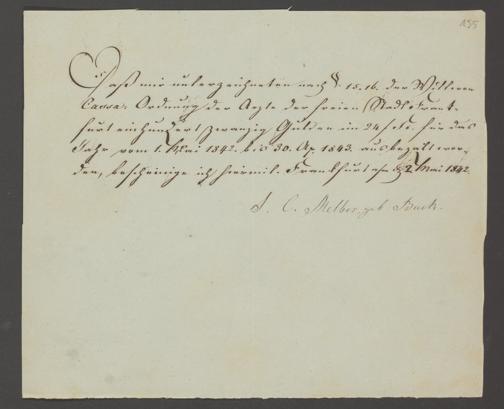 155
Daß mir unterzeichneten nach §. 15.16. der Wittwen
Cassa, Ordnung der Aerzte der freien Stadt Frank-
furt einhundert zwanzig Gulden in 24 f. Fs. für das
Jahr vom 1. Mai 1842. bis 30. Ap. 1843. ausbezahlt wor-
den, bescheinige ich hiermit. Frankfurt a/m 2 Mai 1842.
J. C. Melber, geb.